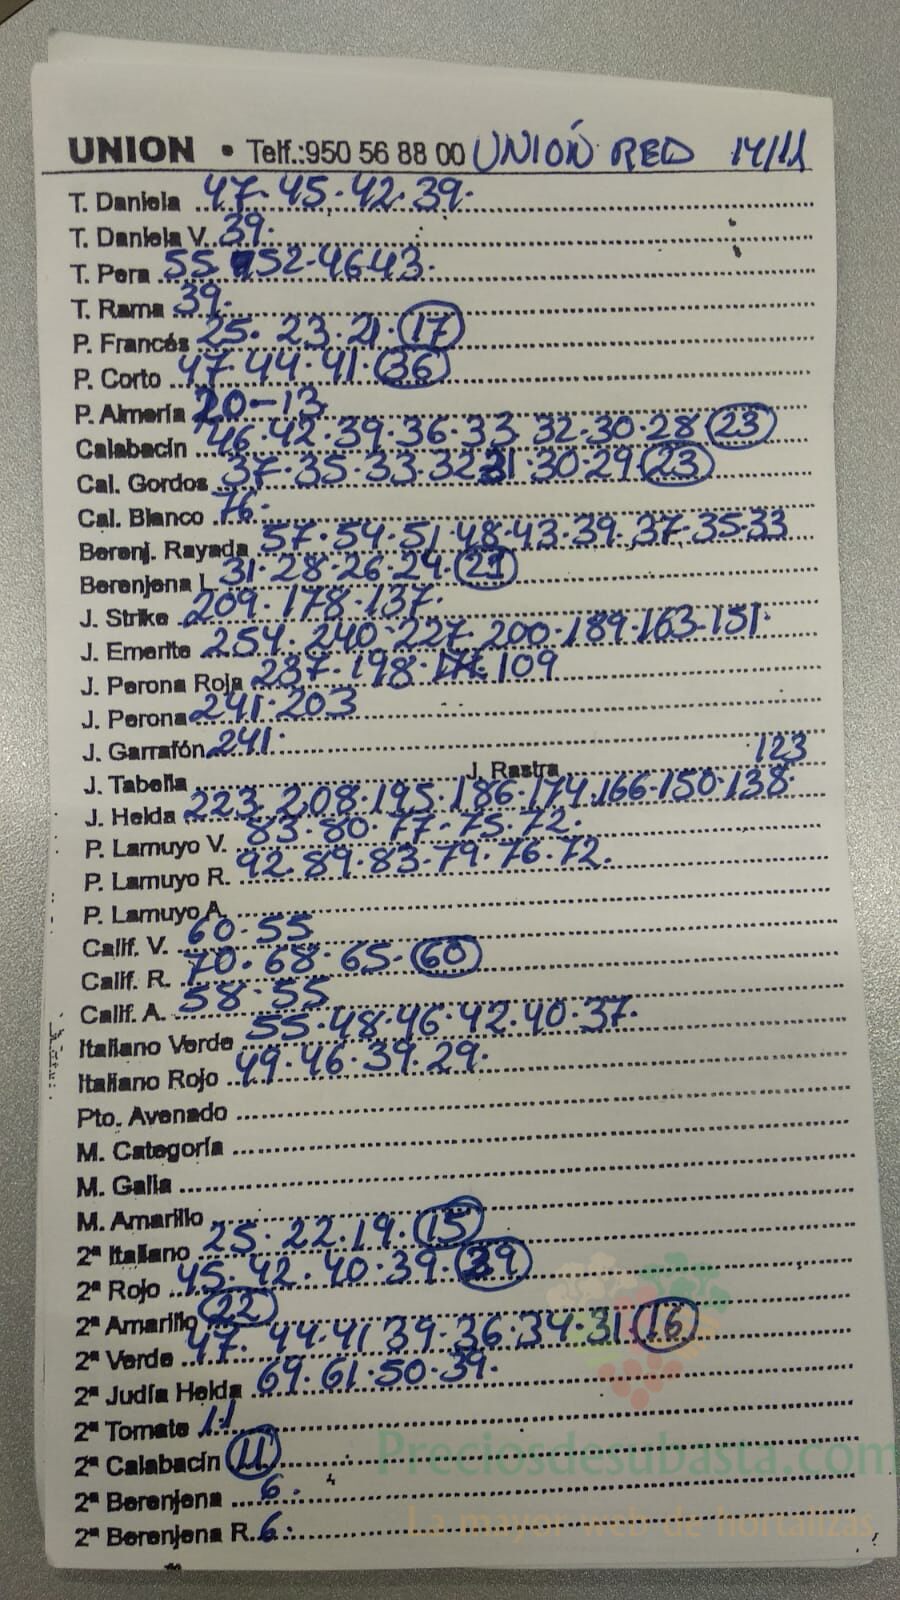 UNION • Telf.:950 56 88 00 UNIÓN RED 14/11
T. Daniela 47. 45. 42. 39.
T. Daniela V. 39.
T. Pera 55 52-46 43.
T. Rama 39.
P. Francés 25. 23. 21. 17
P. Corto 47. 44. 41. 36
P. Almería 20-13
Calabacín 46. 42. 39. 36. 33 32. 30. 28 23
Cal. Gordos 37. 35. 33. 32 31. 30. 29 23
Cal. Blanco 76.
Berenj. Rayada 57. 54. 51. 48. 43. 39. 37. 35-33
Berenjena L 31. 28. 26. 24. 21
J. Strike 209. 178. 137.
J. Emerite 254. 240. 227. 200. 189. 163. 151.
J. Perona Roja 237. 198. 109
J. Perona 241. 203
J. Garrafón 241.
J. Tabella J. Rastra 123
J. Helda 223. 208. 195. 186. 174. 166. 150. 138
P. Lamuyo V. 83. 80. 77. 75. 72.
P. Lamuyo R. 92. 89. 83. 79. 76. 72.
P. Lamuyo A.
Calif. V. 60. 55
Calif. R. 70. 68. 65. 60
Calif. A. 58. 55
Italiano Verde 55. 48. 46. 42. 40. 37.
Italiano Rojo 49. 46. 39. 29.
Pto. Avenado
M. Categoría
M. Galia
M. Amarillo
2ª Italiano 25. 22. 19. 15
2ª Rojo 45. 42. 40. 39. 29
2ª Amarillo 22
2ª Verde 47. 44. 41 39. 36. 34. 31. 16
2ª Judía Helda 69. 61. 50. 39.
2ª Tomate 11
2ª Calabacín 11
Preciosdesubasta.com
2ª Berenjena 6.
La mayor web de hortalizas
2ª Berenjena R. 6.